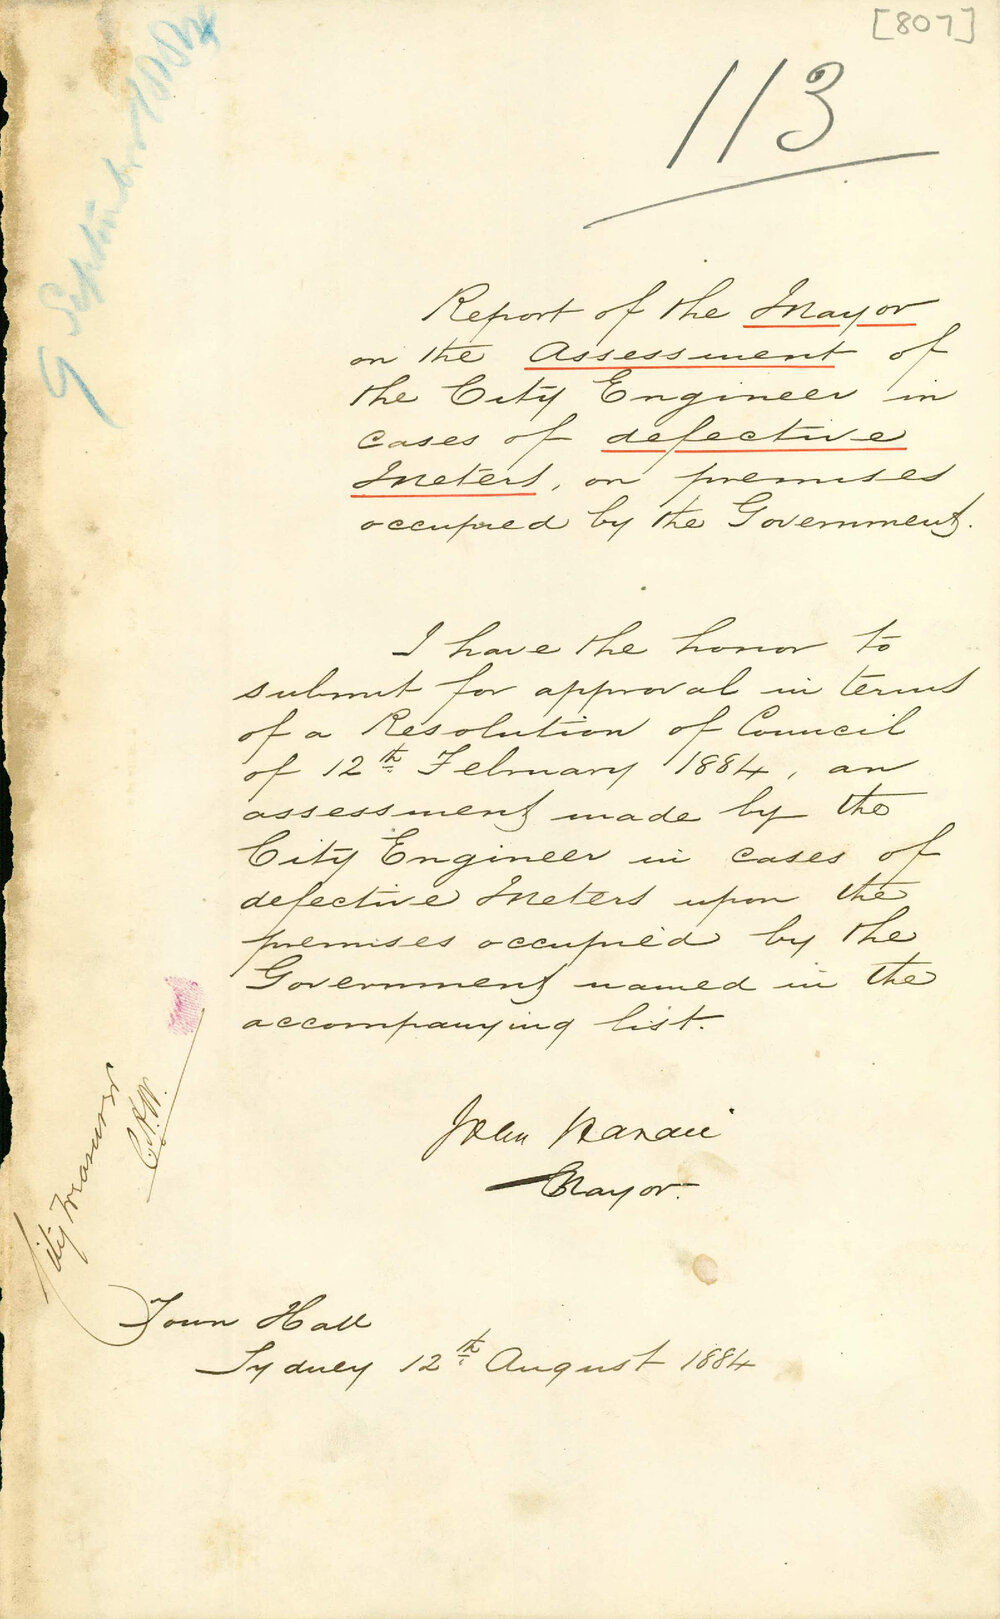 [807]
113
9 September 1884
Report of the Mayor
on the Assessment of
the City Engineer in
cases of defective
Meters, on premises
occupied by the Government.
I have the honor to
submit for approval in terms
of a Resolution of Council
of 12th February 1884, an
assessment made by the
City Engineer in cases of
defective Meters upon the
premises occupied by the
Government named in the
accompanying list.
John Hardie
Mayor.
City Treasurer
Town Hall
Sydney 12th August 1884